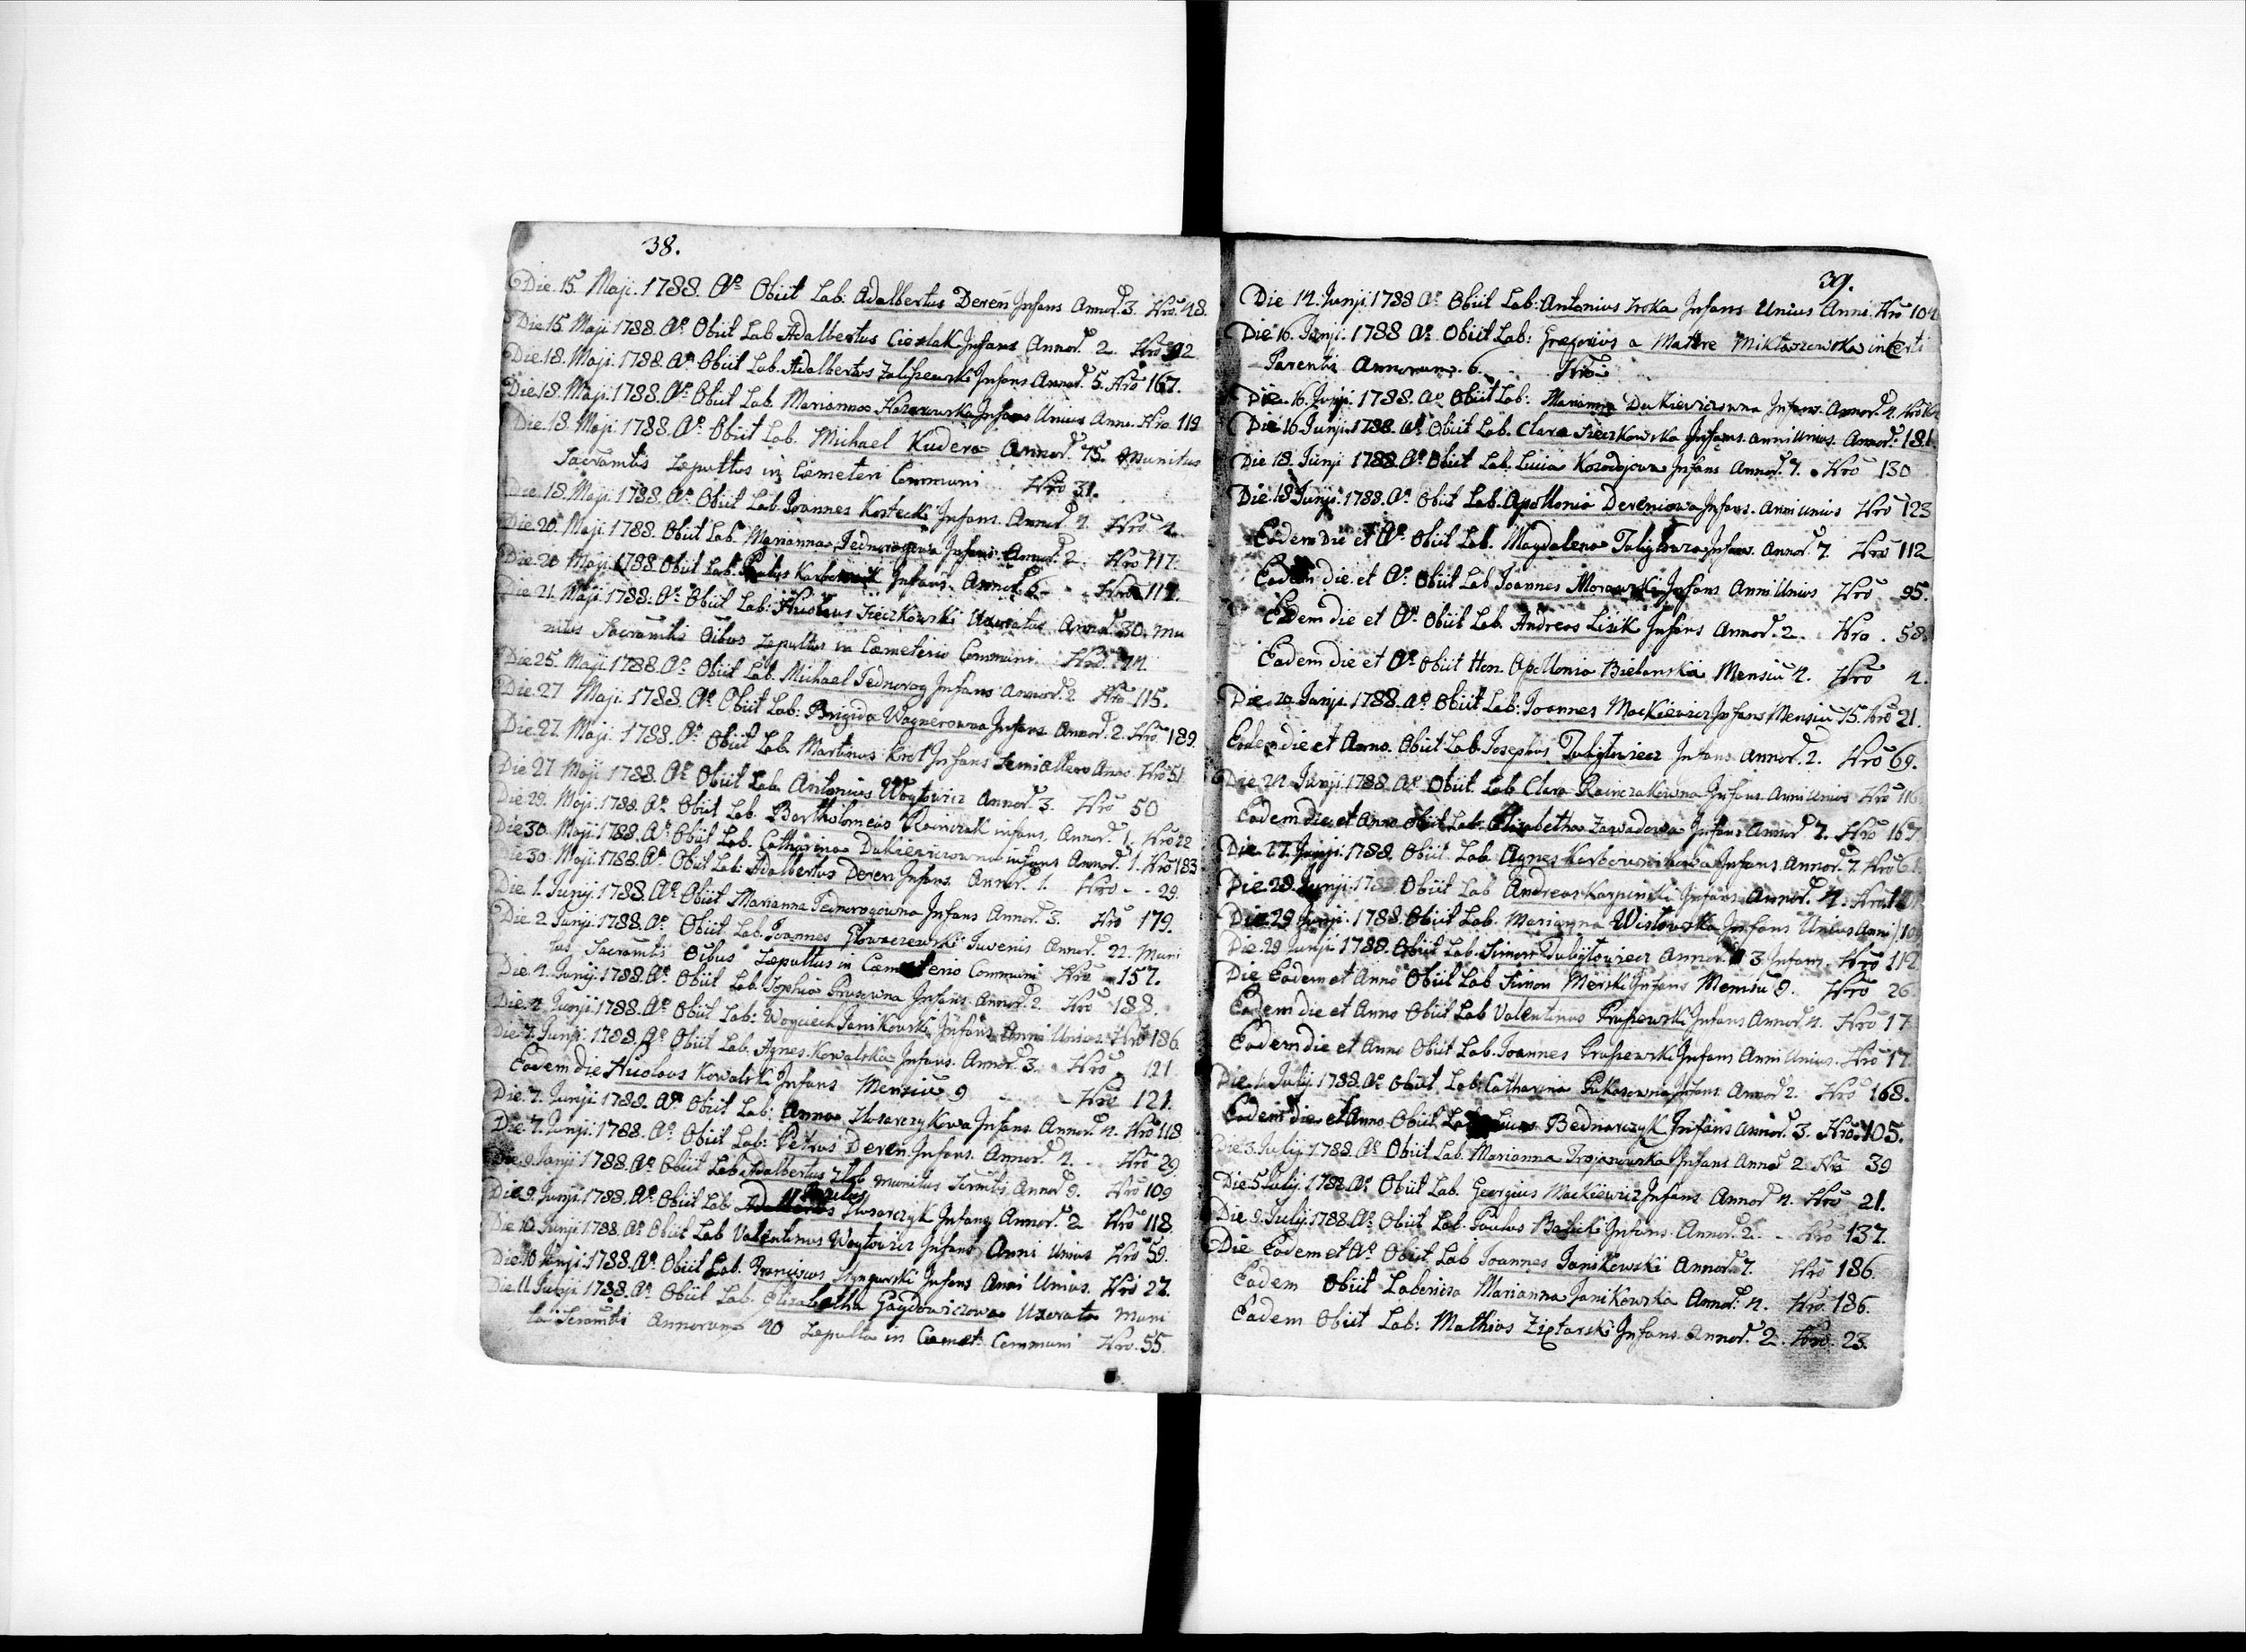 38.
Die 15. Maji. 1788. Ao Obiit Lab: Adalbertus Deren Infans Annor. 3. Nro. 48.
Die 15. Maji 1788. Ao. Obiit Lab Adalbertus Cieslak Infans Annor. 2. Nro
Die 18. Maji. 1788. Ao. Obiit Lab. Adalbertus Infans Annor. 5. Nro 167.
Die 18. Maji. 1788. Ao. Obiit Lab. Marianna Infans Unius Anni. Nro. 119
Die 18. Maji. 1788. Ao. Obiit Lab. Michael Kudera Annor. 75. Munitus
Sacramtis Sepultus in Cæmeteri Communi Nro 31.
Die 18. Maji. 1788. Ao. Obiit Lab. Joannes Kostecki Infans. Annor. 4. Nro 4.
Die 20. Maji. 1788. Obiit Lab. Marianna Infans Annor. 2. Nro 117.
Die 20 Maji. 1788. Obiit Lab. Infans. Annor. 6. Nro 112.
Die 21. Maji. 1788. Ao. Obiit Lab: Nicolaus Sieczkowski Uxoratus Annor. 30. mu
nitus Sacramtis Oibus Sepultus in Cæmeterio Communi. Nro.
Die 25. Maji. 1788. Ao. Obiit Lab. Michael Jednorog Infans Annor. 2 Nro 115.
Die 27 Maji. 1788. Ao. Obiit Lab: Brigida Wagnerowna Infans Annor. 2. Nro. 189.
Die 27. Maji. 1788. Ao Obiit Lab. Martinus Krol Infans Semialtero Anno. Nro 51
Die 27 Maji. 1788. Ao. Obiit Lab. Antonius Woytowicz Annor. 3. Nro 50
Die 29. Maji. 1788. Ao. Obiit Lab. Bartholomeus Rainczak infans. Annor. 1. Nro 22
Die 30. Maji. 1788. Ao Obiit Lab. Catharina Dukiewiczowna infans Annor. 1. Nro 183
Die 30. Maji. 1788. Ao. Obiit Lab: Adalbertus Deren Infans. Annor. 1. Nro - - 29.
Die 1. Junij 1788. Ao. Obiit Marianna Jednorogowna Infans Annor. 3. Nro 179.
Die 2. Junji. 1788. Ao. Obiit Lab. Joannes Glowaczewski Juvenis Annor. 22. Muni
tus Sacramtis Oibus Sepultus in Cæmeterio Communi Nro 157.
Die 4. Junij. 1788. Ao. Obiit Lab. Sophia Prusowna Infans. Annor. 2. Nro 188.
Die 4. Junji 1788. Ao. Obiit Lab: Woyciech Janikowski Infans Anni Unius. Nro 186.
Die 7. Junji. 1788. Ao. Obiit Lab. Agnes Kowalska Infans. Annor. 3. Nro 121
Eadem die Nicolaus Kowalski Infans Mensiu 9 Nro 121.
Die 7. Junji 1788. Ao. Obiit Lab: Anna Slosarczykowa Infans. Annor. 4. Nro 118
Die 7. Junji. 1788. Ao. Obiit Lab: Petrus Deren Infans. Annor. 4. Nro 29
Die 9 Junji 1788. Ao. Obiit Lab Adalbertus Zlob munitus Scrmtis. Annor. 9. Nro 109
Paulus
Die 9. Junji. 1788. Ao. Obiit Lab Slosarczyk Infans Annor. 2 Nro 118
Die 10. Junji 1788. Ao Obiit Lab Valentinus Woytowicz Infans Anni Unius Nro 59.
Die 10 Junji. 1788. Ao. Obiit Lab. Franciscus Infans Anni Unius. Nro 27.
Die 11. Junji 1788. Ao. Obiit Lab. Elizabetha Gaydowiczowa Uxorata Muni
ta Scramtis Annorum 40 Sepulta in Cæmet: Communi Nro. 55.
39.
Die 14. Junji. 1788 Ao Obiit Lab: Antonius Sroka Infans Unius Anni. Nro 104
Die 16. Junji. 1788 Ao Obiit Lab: Gregorius a Mattre Miktaszewska incerti
Parentis Annorum. 6. Nro
Die 16. Junji. 1788. Ao Obiit Lab: Marianna Dukiewiczowna Infans. Annor. 4. Nro
Die 16 Junji. 1788. Ao. Obiit Lab. Clara Sieczkowska Infans. anni unius. Annor. 181.
Die 18. Junji 1788. Ao Obiit Lab. Lucia Kozodojowa Infans Annor. 7. Nro 130
Die 18 Junji. 1788. Ao. Obiit Lab. Apollonia Dereniowa Infans. Anni unius Nro 123
Eodem die et Ao. Obiit Lab. Magdalena Infans. Annor. 7. Nro 112
Eadem die et Ao. Obiit Lab Joannes Morawski Infans Anni Unius Nro 95.
Eadem die et Ao. Obiit Lab. Andreas Lisik Infans Annor. 2. Nro. 58.
Eadem die et Ao Obiit Hon. Apollonia Bielanska Mensiu 4. Nro 4.
Die 20. Junji. 1788. Ao. Obiit Lab: Joannes Mackiewicz Infans Mensiu 15. Nro 21.
Eodem die et Anno. Obiit Lab. Josephus Infans Annor. 2. Nro 69.
Die 24 Junji 1788. Ao. Obiit Lab Clara Rainczakowna Infans Anni Unius Nro 116
Eadem die et Anno Obiit Lab. Elizabetha Zawadowa Infans Annor. 7. Nro 167.
Die 27. Junji. 1788. Obiit Lab. Agnes Infans. Annor. 7. Nro 61.
Die 28. Junji 1788 Obiit Lab Andreas Karpinski Infans Annor. 4. Nro
Die 29 Junji. 1788. Obiit Lab. Marianna Wislowska Infans Unius Anni
Die 29 Junji. 1788. Obiit Lab. Simon Annor. 3 Infans. Nro 112.
Die Eadem et Anno Obiit Lab Simon Merski Infans Mensiu 9. Nro 26.
Eadem die et Anno Obiit Lab Valentinus Infans Annor. 4. Nro 17
Eodem die et Anno Obiit Lab. Joannes Infans Anni Unius. Nro 17.
Die 1. Julij 1788. Ao Obiit Lab: Catharina Infans. Annor 2. Nro 168.
Eodem die et Anno. Obiit Lab Bednarczyk Infans Annor. 3. Nro. 105.
Die 3. Julij 1788. Ao Obiit Lab. Marianna Trojanowska Infans Annor 2 Nro 39
Die 5 Julij. 1788. Ao. Obiit Lab. Georgius Mackiewicz Infans Annor 4. Nro 21.
Die 9. Julij 1788. Ao. Obiit Lab. Paulus Infans. Annor. 2. - Nro 137.
Die Eodem et Ao. Obiit Lab Joannes Janikowski Annor. 7. Nro 186.
Eadem Obiit Marianna Janikowska Annor. 4. Nro. 186.
Eadem Obiit Lab: Mathias Infans Annor. 2. Nro. 23.